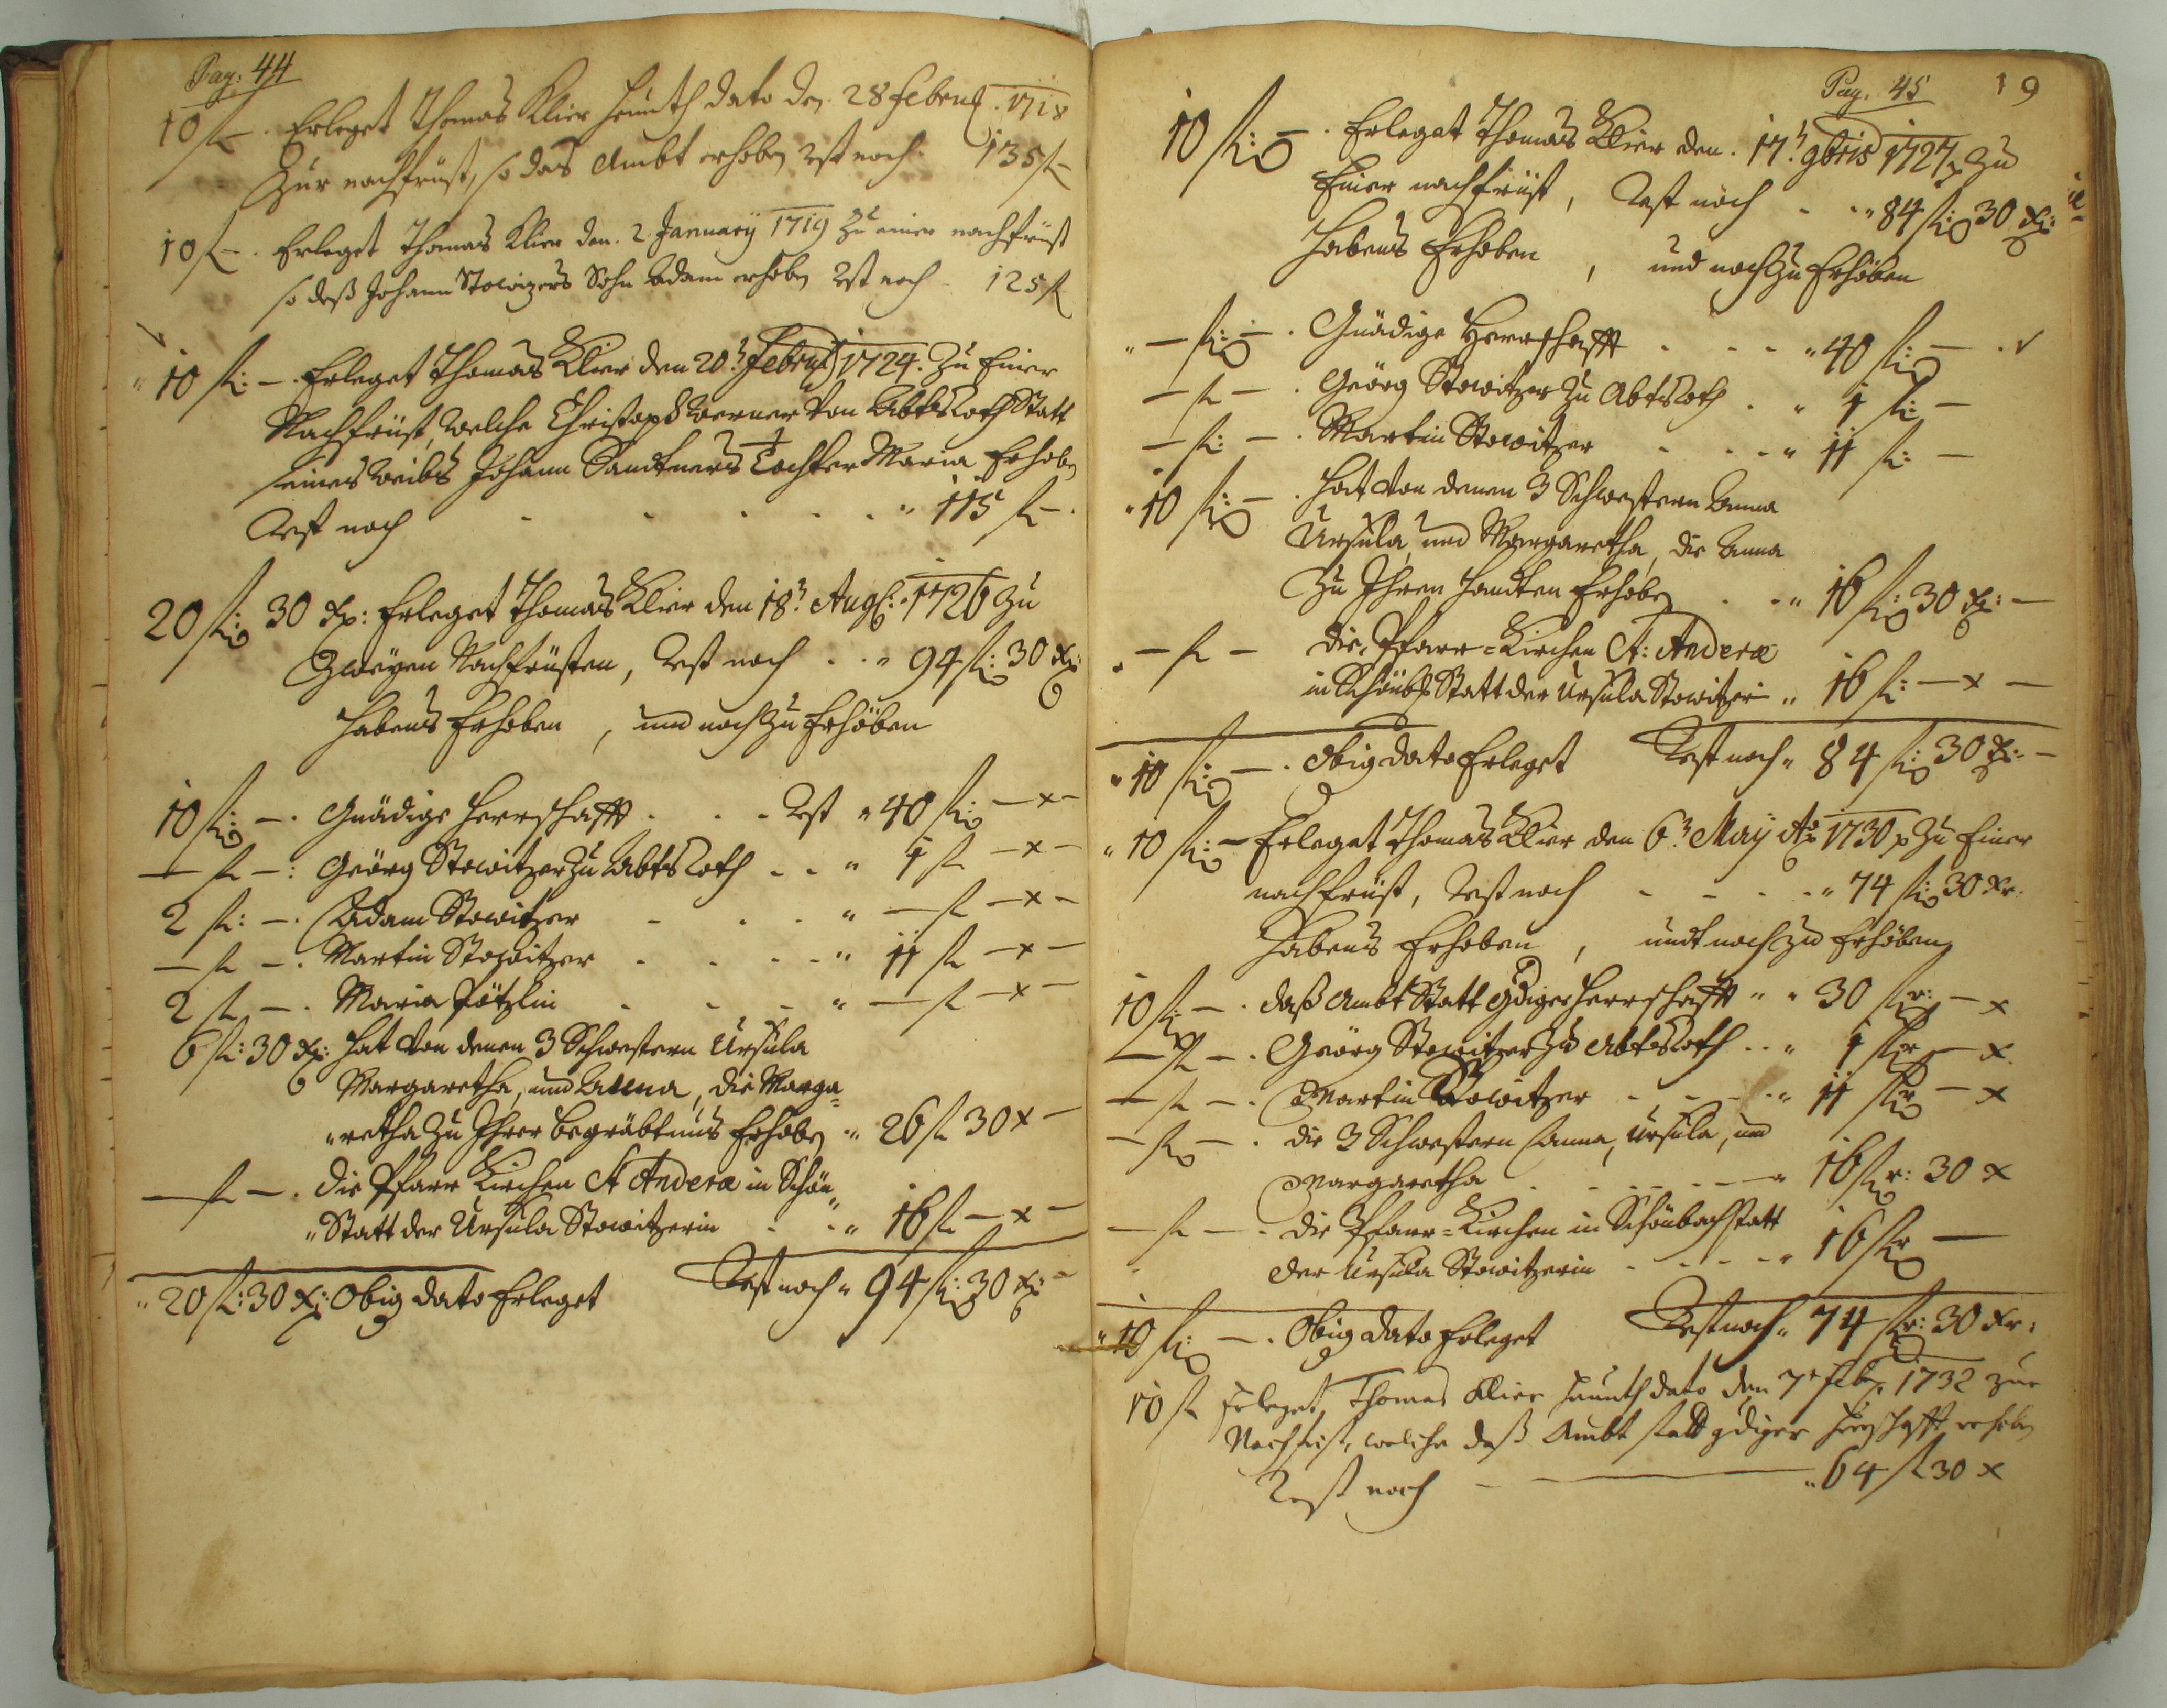 Pag: 44
10 f — . Erleget Thomas Klier heunth dato den. 28 Febru. 1718
Zur nachfrüst, so das Ambt erhoben Rst noch 135 f —
10 f — . Erleget Thomas Klier den. 2 January 1719 zu einer nachfrüst
so deß Johann Stowizers Sohn Adam erhoben Rst noch 125 f
10 fl: — . Erleget Thomas Klier den 20: Febru: 1724. Zu Einer
Nachfrüst, welche Christoph Werner von Abtsroth Statt
seines weibs Johann Sandtners Tochter Maria Erhoben
Rest noch " 115 fl — .
20 fl: 30 xr: Erleget Thomas Klier den 18: Aug: 1726 zu
Zweÿen Nachfrüsten, Rest noch . . " 94 fl: 30 xr:
Habens Erhoben , und noch zu Erhöben
10 fl: — . Gnädige Herrschafft . . . Rst " 40 fl: — x —
— fl — : Geörg Stowitzer zu Abtsroth . . " 1 fl — x —
2 fl: — . Adam Stowitzer . . . " — fl — x —
— fl — . Martin Stowitzer . . . " 11 fl — x —
2 fl — . Maria Pötzlin . . . " — fl — x —
6 fl: 30 xr: hat von denen 3 Schwestern Ursula
Margaretha, und Anna, die Marga=
"retha zu Ihrer begräbtnus Erhoben " 26 fl 30 x —
— fl — . die Pfarr Kirchen St Anderæ in Schön
" Statt der Ursula Stowitzerin . . " 16 fl — x —
" 20 fl: 30 xr: Obig dato Erleget Rest noch " 94 fl: 30 xr: —
Pag. 45 19
10 fl: — . Erleget Thomas Klier den. 17: 9bris 1727 zu
Einer nachfrüst, Rest noch . . " 84 fl: 30 xr:
Habens Erhoben , und noch zu Erhöben
" — fl: — . Gnädige Herrschafft . . . " 40 fl: — . v
— fl — . Geörg Stowitzer zu Abtsroth . " 1 fl: —
— fl: — . Martin Stowitzer . . . " 11 fl: —
" 10 fl: — . hat von denen 3 Schwestern Anna
Ursula, und Margaretha, die Anna
Zu Ihren handten Erhoben . . " 16 fl: 30 xr: —
" — fl — die Pfarr=Kirchen St: Anderæ
in Schönb: Statt der Ursula Stowitzerin " 16 fl: — x —
" 10 fl: — . Obig dato Erleget Rest noch " 84 fl: 30 xr: —
" 10 fl: — Erleget Thomas Klier den 6: Maÿ Ao 1730 zu Einer
nachfrüst, Rest noch . . . " 74 fl: 30 xr.
Habens Erhoben , undt noch zu Erhöben
10 fl — . daß Ambt Statt gdiger Herrschafft " " 30 flr: — x
— fl — . Geörg Stowitzer zu Abtsroth . . " 1 flr — x.
— fl — . Martin Stowitzer . . . " 11 flr — x
— fl — . die 3 Schwestern Anna, Ursula, und
Margaretha . . . . — " 16 flr: 30 x
— fl — . die Pfarr=Kirchen in Schönbach statt
der Ursula Stowitzerin . . . " 16 flr —
" 10 fl: — . Obig dato Erleget Rest noch " 74 flr: 30 xr:
10 fl Erleget Thomas Klier heunth dato den 7t Feb: 1732 zur
Nachfrist, welche daß Ambt statt gdiger Herrschafft erhoben
Rest noch — " 64 fl 30 x